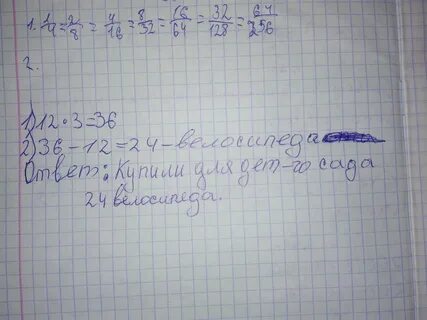 1. 1/4 = 2/8 = 4/16 = 8/32 = 16/64 = 32/128 = 64/256
2.
1) 12 · 3 = 36
2) 36 - 12 = 24 - велосипеда
Ответ: Купили для дет-го сада
24 велосипеда.